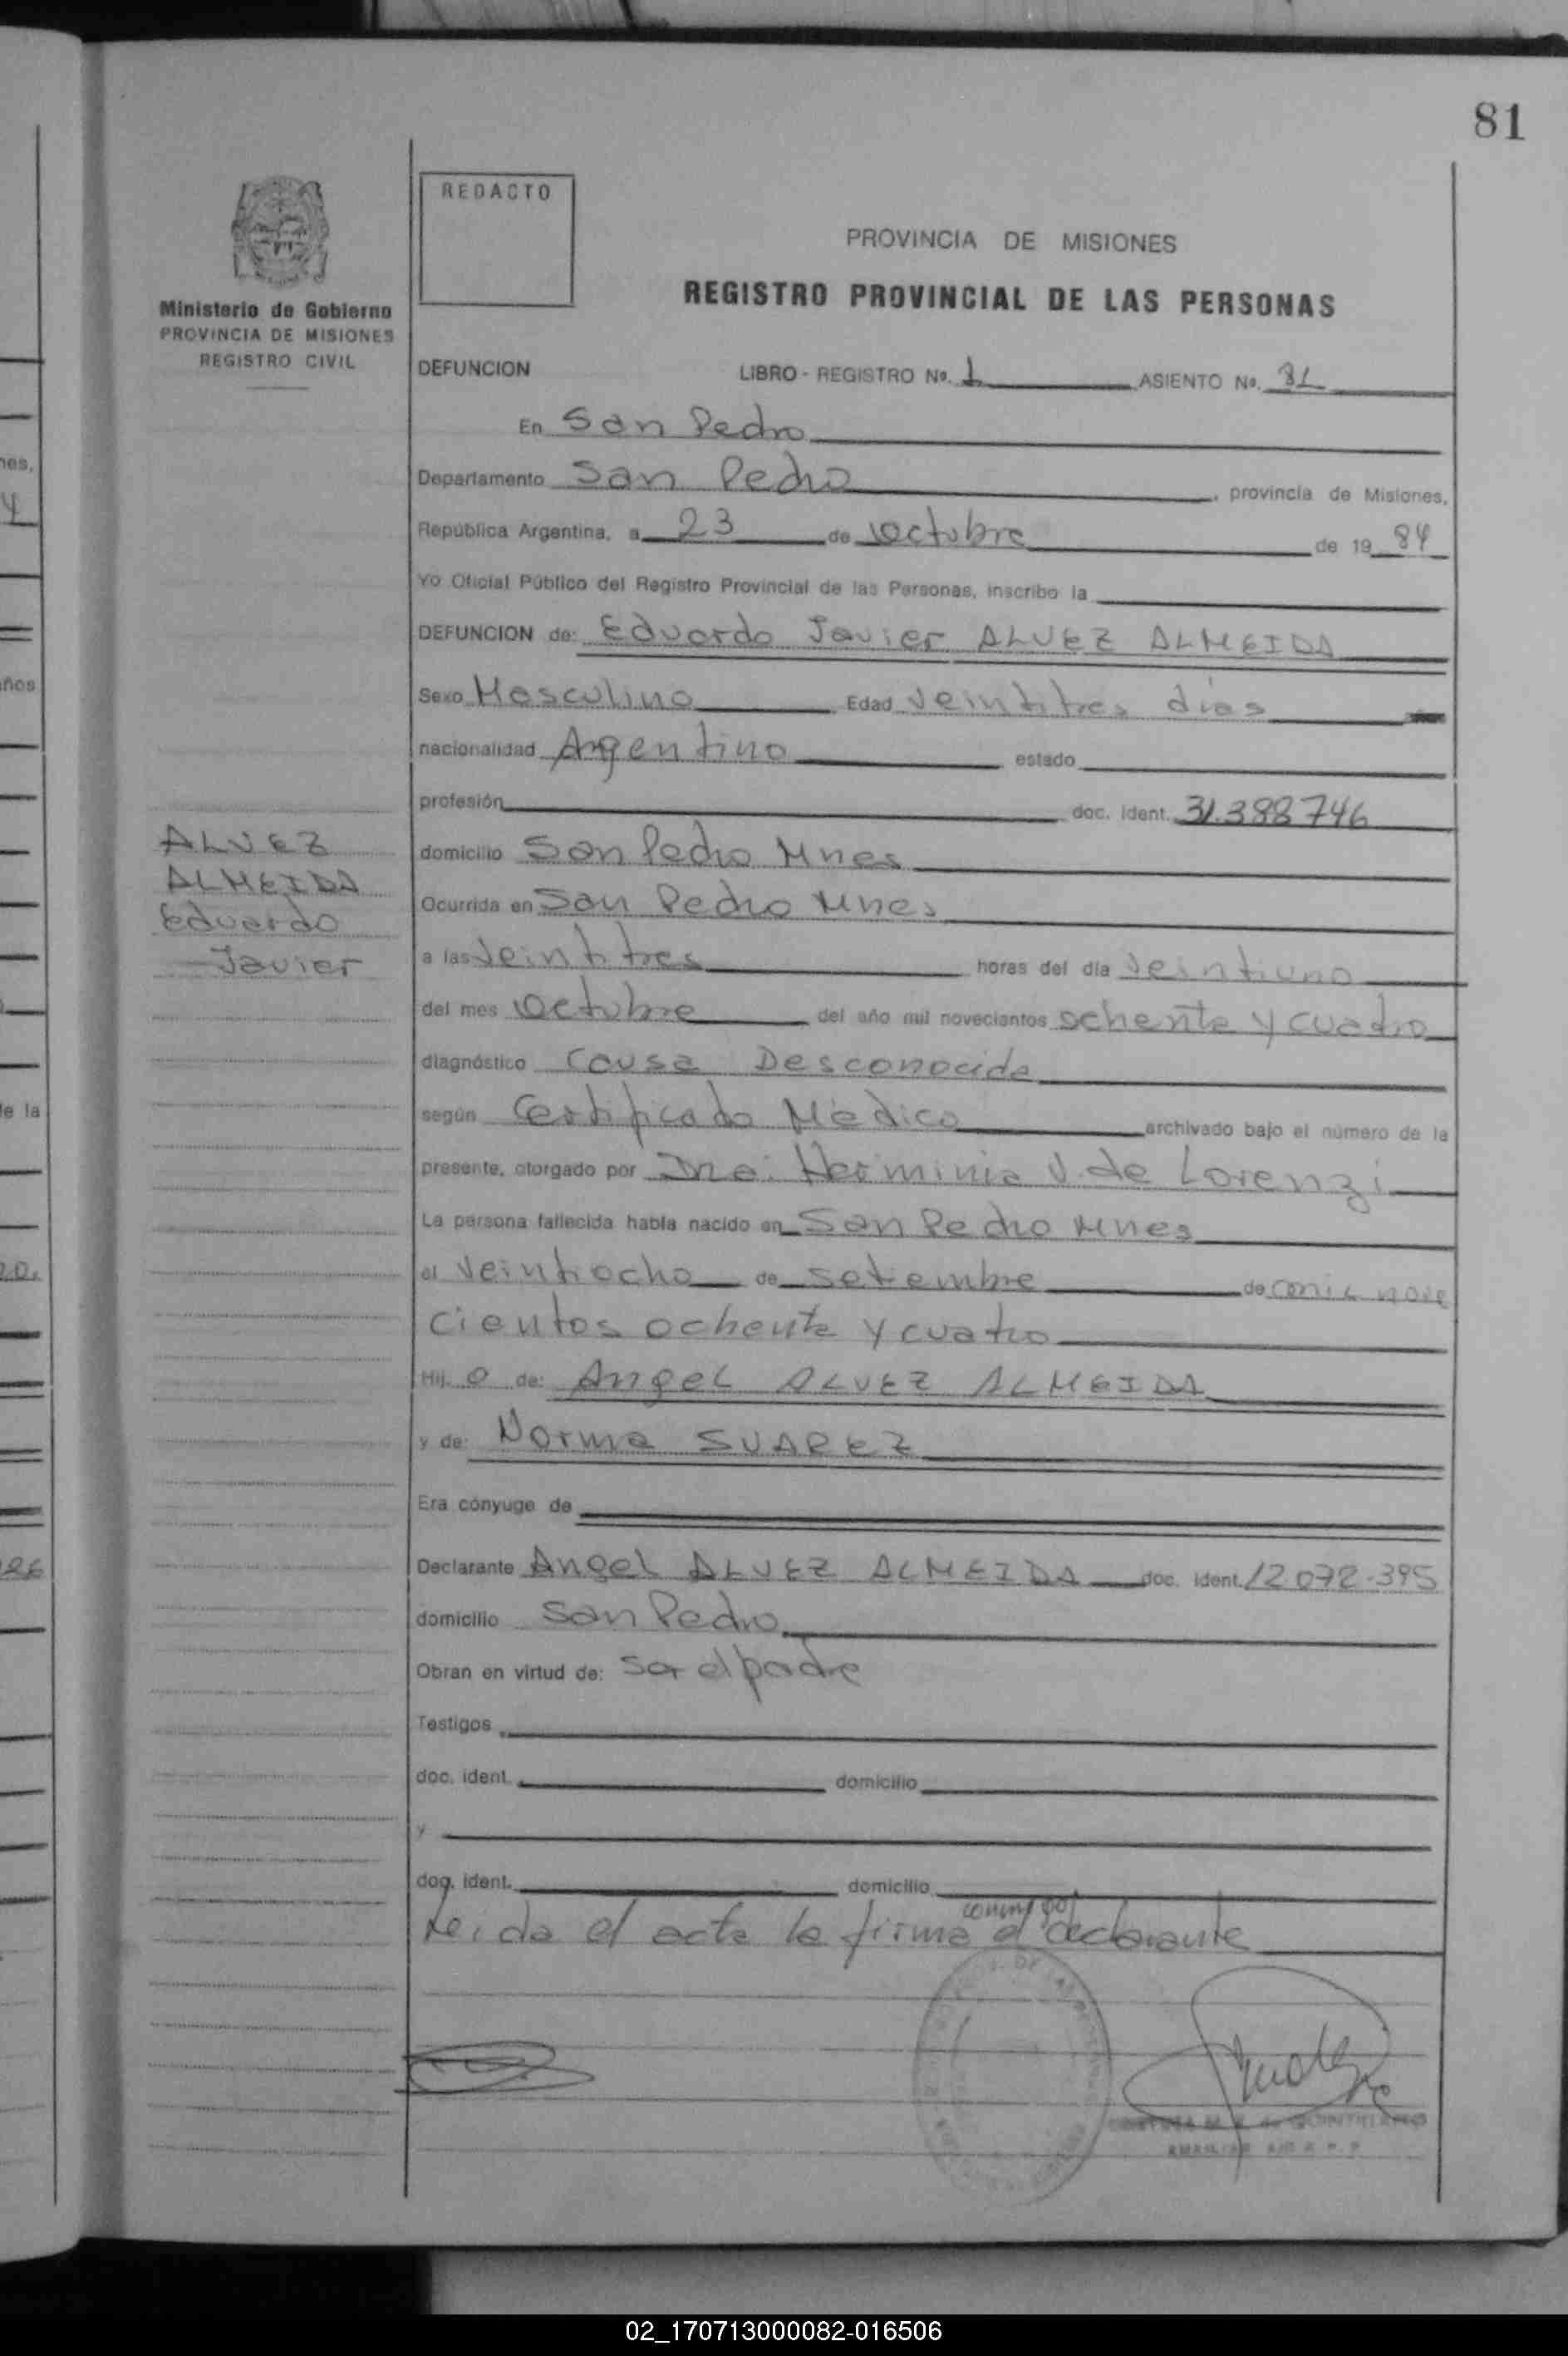 81
REDACTO
PROVINCIA DE MISIONES
REGISTRO PROVINCIAL DE LAS PERSONAS
Ministerio de Gobierno
PROVINCIA DE MISIONES
REGISTRO CIVIL
DEFUNCION LIBRO - REGISTRO Nº. 1 ASIENTO Nº. 81
En San Pedro
Departamento San Pedro, provincia de Misiones,
República Argentina, a 23 de octubre de 19 84
Yo Oficial Público del Registro Provincial de las Personas, inscribo la
DEFUNCION de: Eduardo Javier ALVEZ ALMEIDA
Sexo Masculino Edad veintitres dias
nacionalidad Argentino estado
profesión doc. ident. 31.388746
ALVEZ
ALMEIDA
Eduardo
Javier
domicilio San Pedro Mnes
Ocurrida en San Pedro Mnes
a las veintitres horas del día veintiuno
del mes octubre del año mil novecientos ochenta y cuatro
diagnóstico Causa Desconocida
según Certificado Médico archivado bajo el número de la
presente, otorgado por Dra. Herminia V. de Lorenzi
La persona fallecida había nacido en San Pedro Mnes
el veintiocho de setiembre de mil nove
cientos ochenta y cuatro
Hij o de: Angel ALVEZ ALMEIDA
y de: Norma SUAREZ
Era cónyuge de
Declarante Angel ALVEZ ALMEIDA doc. ident. 12.072.395
domicilio San Pedro
Obran en virtud de: ser el padre
Testigos
doc. ident. domicilio
y
doc. ident. domicilio
conmigo
Leida el acta la firma el declarante
02_170713000082-016506